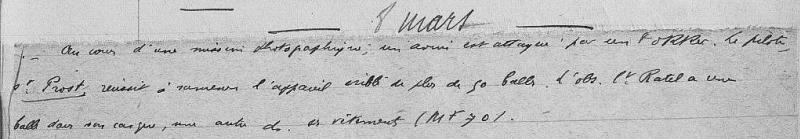 8 mars
— Au cours d'une mission photographique, un avion est attaqué par un Fokker. Le pilote
St Prost, réussit à ramener l'appareil criblé de plus de 50 balles. L'obs. Lt Ratel a une
balle dans son casque, une autre ds. ses vêtement (MF 70).